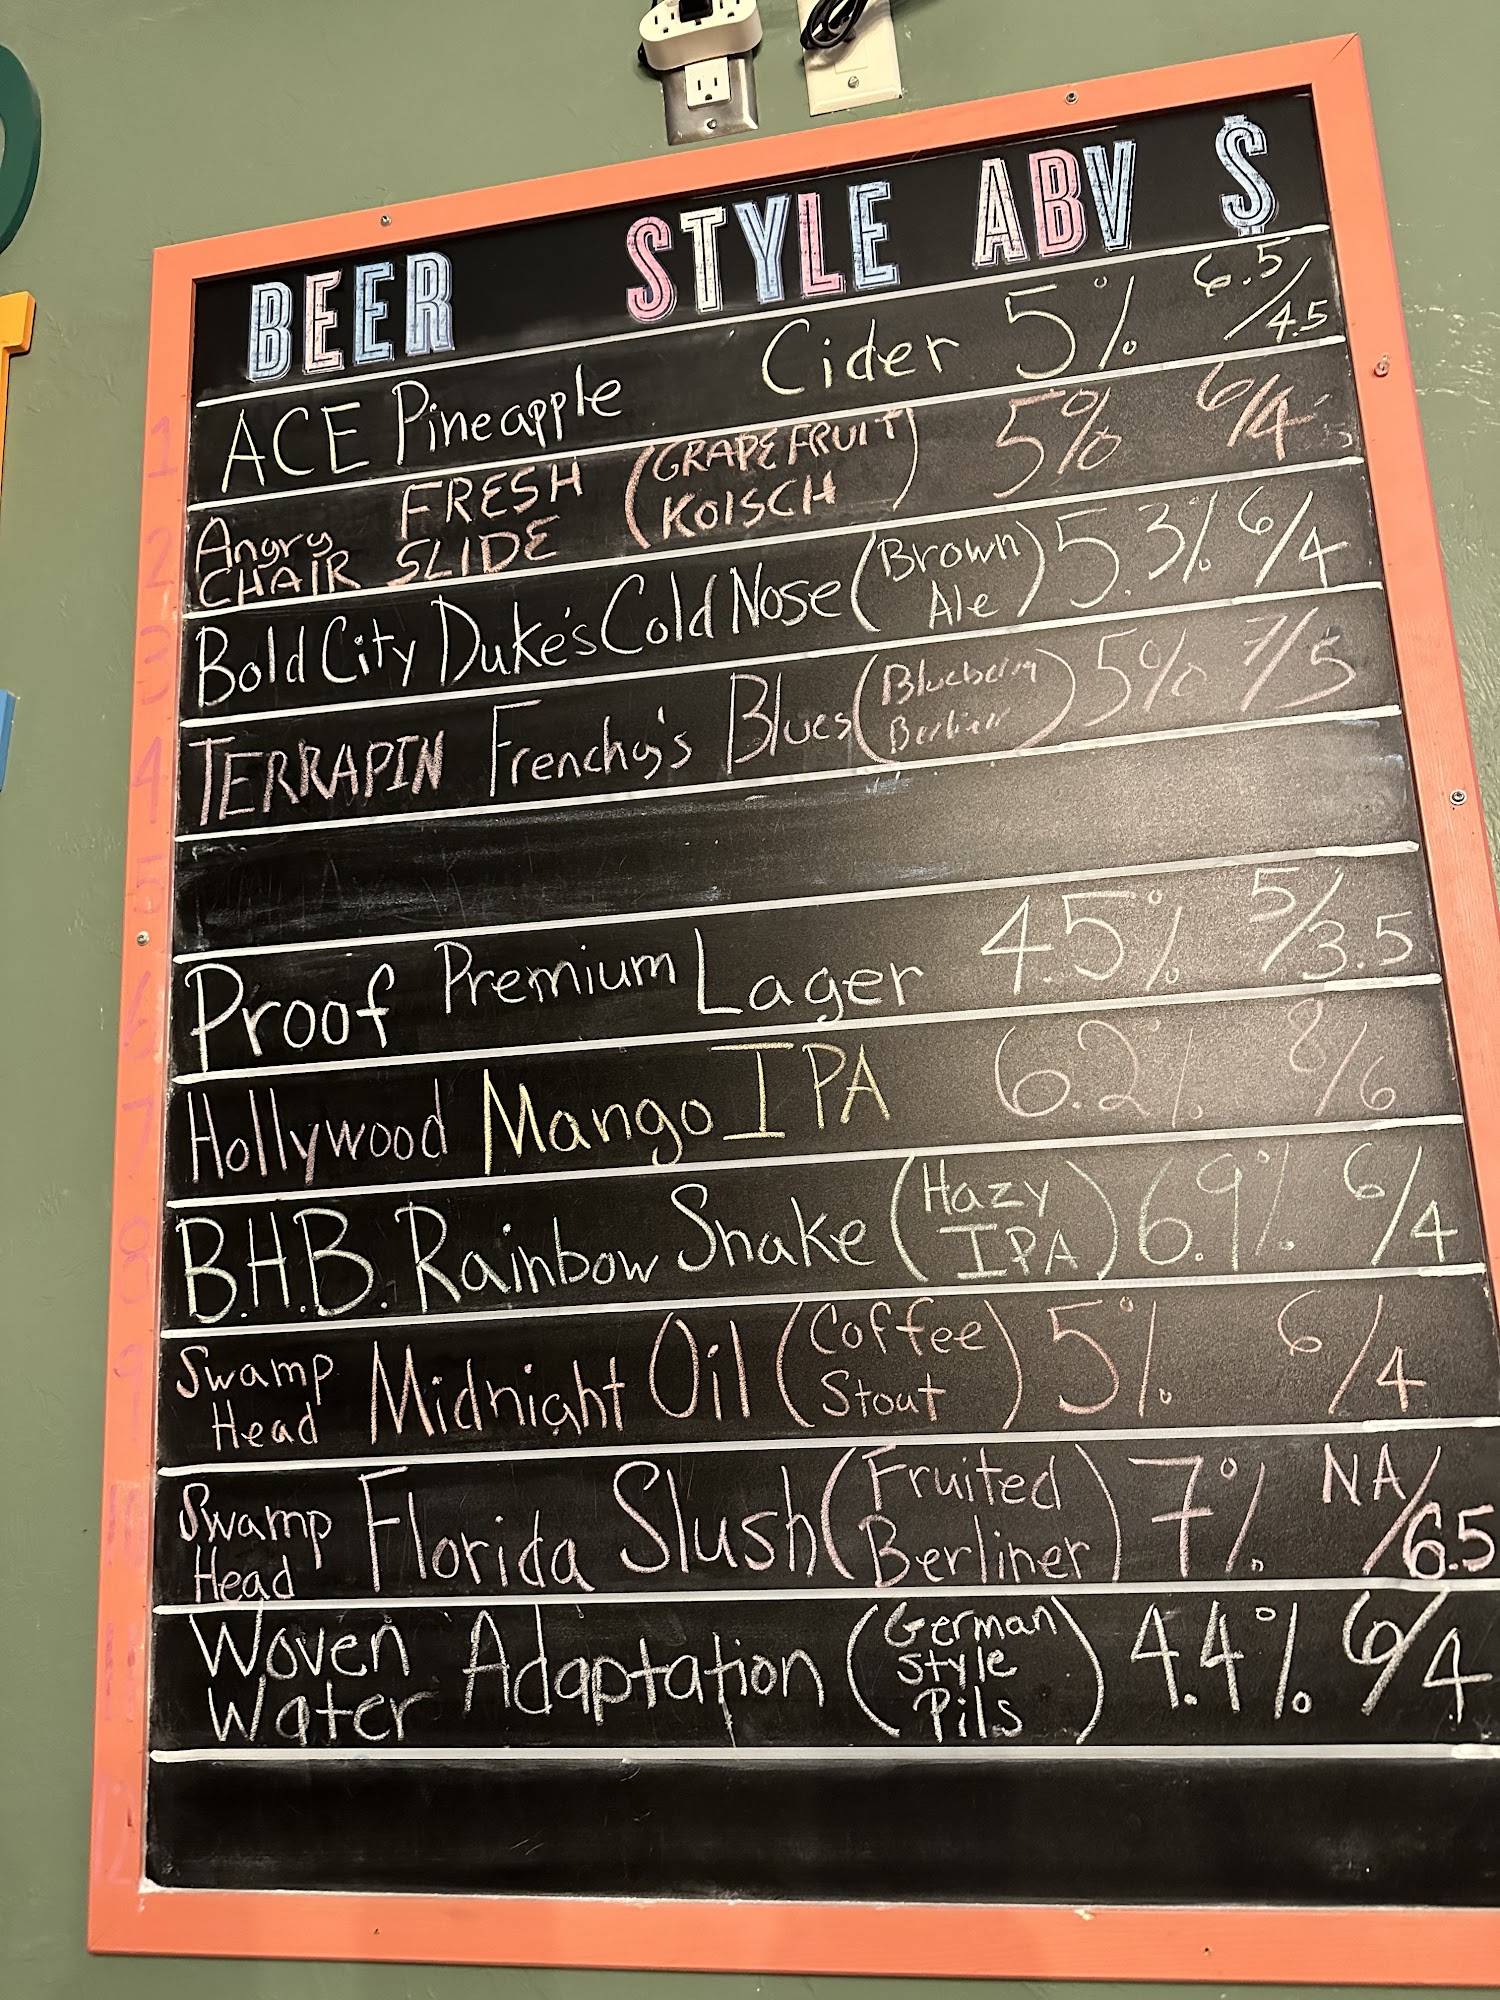 BEER STYLE ABV $
1 ACE Pineapple Cider 5% 6.5/4.5
2 Angry CHAIR FRESH SLIDE (GRAPEFRUIT KOISCH) 5% 6/4
3 Bold City Duke's Cold Nose (Brown Ale) 5.3% 6/4
4 TERRAPIN Frenchy's Blues (Blueberry Berliner) 5% 7/5
5
6 Proof Premium Lager 4.5% 5/3.5
7 Hollywood Mango IPA 6.2% 8/6
8 B.H.B. Rainbow Snake (Hazy IPA) 6.9% 6/4
9 Swamp Head Midnight Oil (Coffee Stout) 5% 6/4
Swamp Head Florida Slush (Fruited Berliner) 7% NA/6.5
Woven Water Adaptation (German Style Pils) 4.4% 6/4